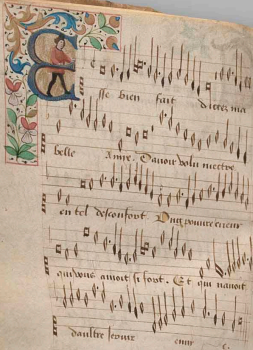 Esse bien fait dictez ma
belle Amye. Davoir volu mectre
en tel desconfort Ung pouvre cueur
qui vous amoit si fort. Et qui navoit
daultre servir envie